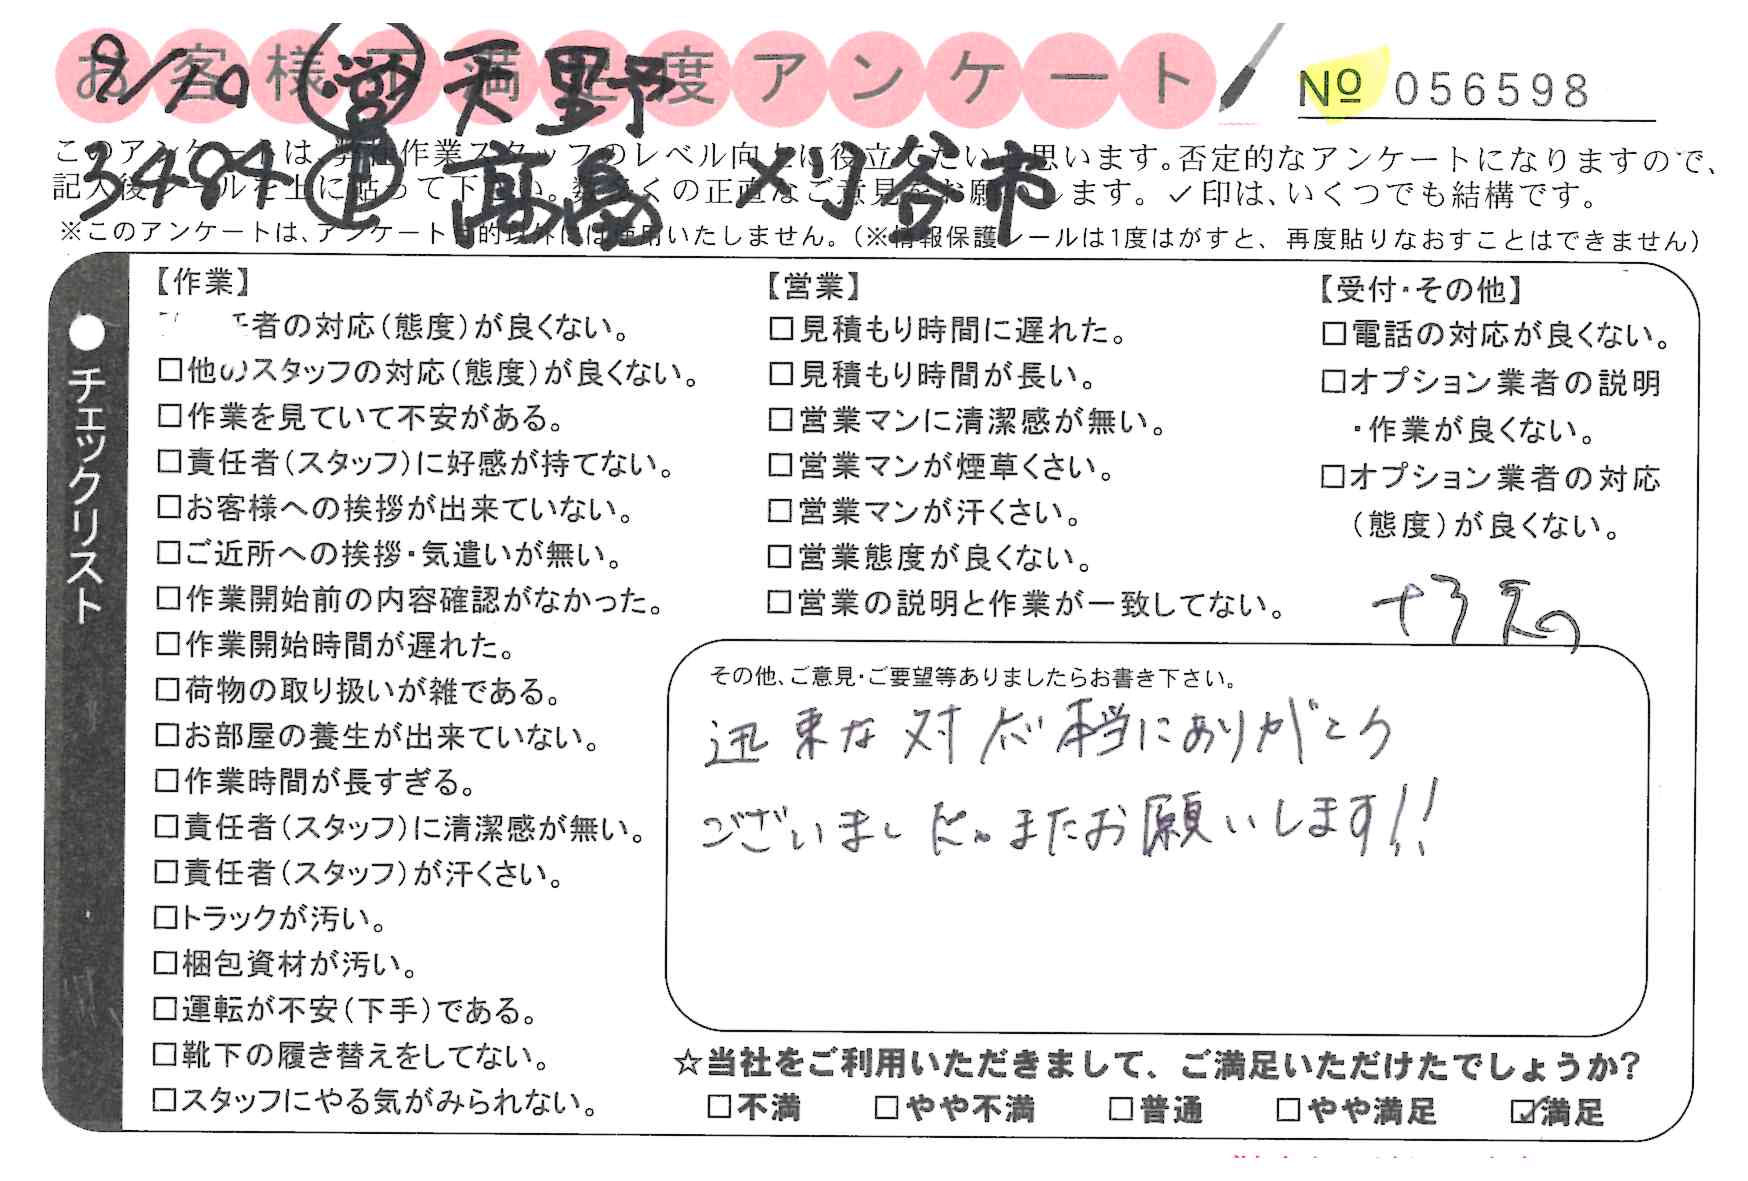 お客様不満足度アンケート
№ 056598
9/20 営 天野
3494 上 高島 刈谷市
このアンケートは、弊社作業スタッフのレベル向上に役立てたいと思います。否定的なアンケートになりますので、
記入後シールを上に貼って下さい。数多くの正直なご意見をお願いします。✓印は、いくつでも結構です。
※このアンケートは、アンケート目的以外には使用いたしません。(※情報保護シールは1度はがすと、再度貼りなおすことはできません)
●チェックリスト
【作業】
任者の対応(態度)が良くない。
□他のスタッフの対応(態度)が良くない。
□作業を見ていて不安がある。
□責任者(スタッフ)に好感が持てない。
□お客様への挨拶が出来ていない。
□ご近所への挨拶・気遣いが無い。
□作業開始前の内容確認がなかった。
□作業開始時間が遅れた。
□荷物の取り扱いが雑である。
□お部屋の養生が出来ていない。
□作業時間が長すぎる。
□責任者(スタッフ)に清潔感が無い。
□責任者(スタッフ)が汗くさい。
□トラックが汚い。
□梱包資材が汚い。
□運転が不安(下手)である。
□靴下の履き替えをしてない。
□スタッフにやる気がみられない。
【営業】
□見積もり時間に遅れた。
□見積もり時間が長い。
□営業マンに清潔感が無い。
□営業マンが煙草くさい。
□営業マンが汗くさい。
□営業態度が良くない。
□営業の説明と作業が一致してない。
【受付・その他】
□電話の対応が良くない。
□オプション業者の説明
・作業が良くない。
□オプション業者の対応
(態度)が良くない。
その他、ご意見・ご要望等ありましたらお書き下さい。
迅速な対応本当にありがとう
ございました。またお願いします!!
☆当社をご利用いただきまして、ご満足いただけたでしょうか?
□不満 □やや不満 □普通 □やや満足 ☑満足